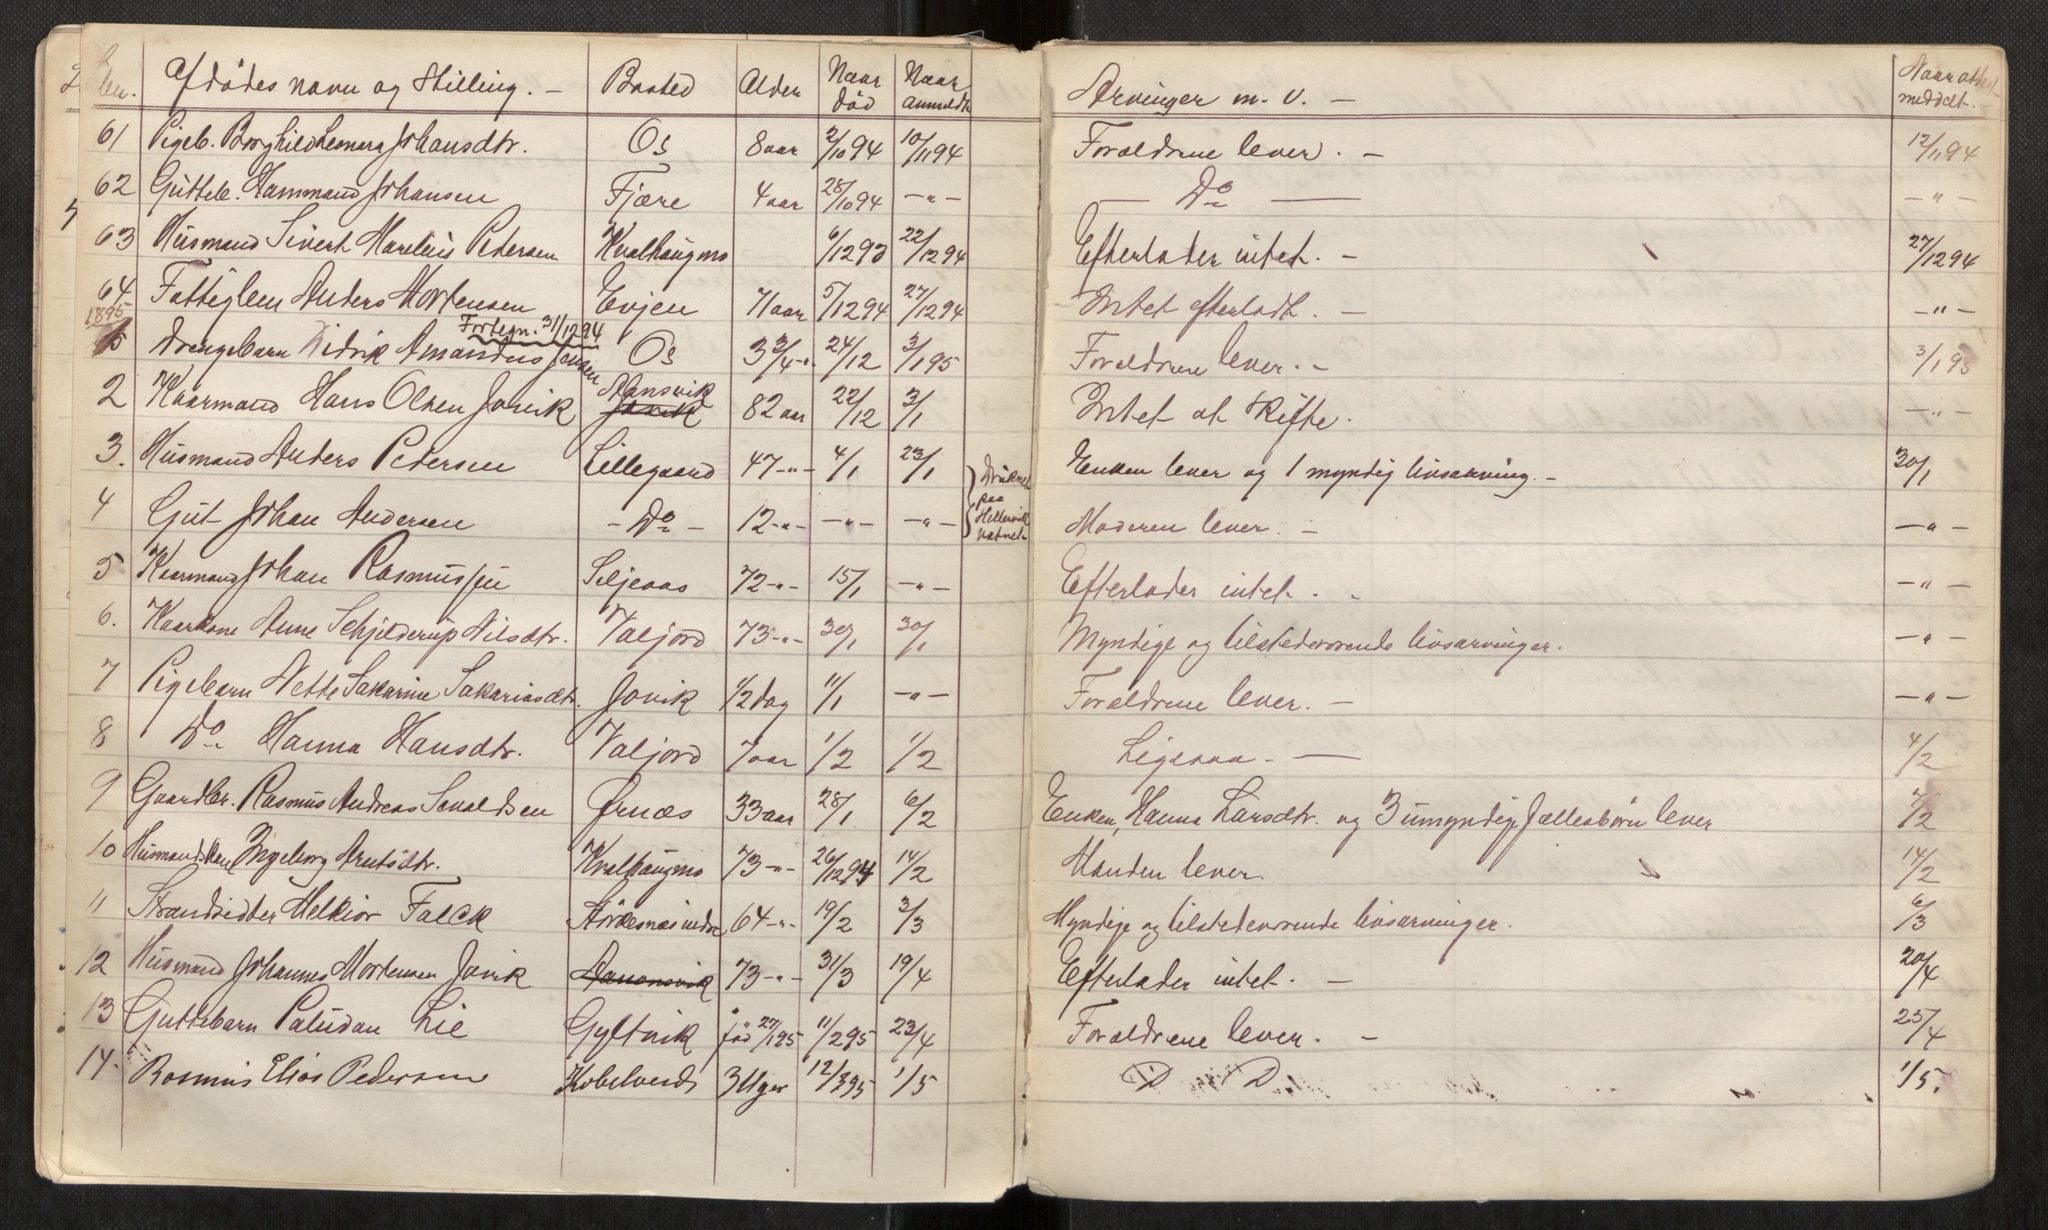 No. Afdødes navn og Stilling. – Bosted Alder Naar død Naar anmeldt Arvinger m. v. – Naar attest meddelt.
61 Pigeb. Borghild Leonora Johansdtr. Os 8 aar 2/10 94 10/11 94 Forældrene lever. – 12/11 94
62 Gutteb. Hammand Johansen Fjære 4 aar 28/10 94 – " – Do – " –
63 Husmand Sivert Marelius Petersen Kvalhaugmo 6/12 93 22/12 94 Efterlader intet. – 27/12 94
64 Fattiglem Anders Mortensen Evjen 71 aar 5/12 94 27/12 94 Intet efterladt. – – " –
1895 Fortegn. 31/12 94
Drengebarn Didrik Amandus Jensen Os 3 3/4 – " 24/12 3/1 95 Forældrene lever. – 3/1 95
2 Kaarmand Hans Olsen Jovik Jovik 82 aar 22/12 3/1 Intet at skifte. – " –
3. Husmand Anders Petersen Lillegaard 47 – " – 4/1 23/1 Druknet paa Hellervik vatnet Enken lever og 1 myndig livsarving. – 30/1
4 Gut Johan Andersen – Do – 12 – " – – " – – " – Moderen lever. – – " –
5 Kaarmand Johan Rasmussen Seljeaas 72 – " – 15/1 – " – Efterlader intet. – – " –
6. Kaarkone Anne Schjelderup Nilsdtr. Valjord 73 – " – 30/1 30/1 Myndige og tilstedeværende livsarvinger. – " –
7 Pigebarn Nette Sakarine Sakariasdtr. Jovik 1/2 dag 11/1 – " – Forældrene lever. – – " –
8 Do Hanna Hansdtr. Valjord 7 aar 1/2 1/2 Ligesaa. – 4/2
9 Gaardbr. Rasmus Andreas Sevaldsen Ørnæs 33 aar 28/1 6/2 Enken, Hanna Larsdtr. og 3 umyndige fællesbørn lever 7/2
10 Husmandskone Ingeborg Arntsdtr. Kvalhaugmo 73 – " – 26/12 94 14/2 Manden lever. 14/2
11 Strandsidder Melkior Falck Størkesnæs indre 64 – " – 19/2 3/3 Myndige og tilstedeværende livsarvinger. 6/3
12 Husmand Johannes Mortensen Jovik 73 – " – 31/3 19/4 Efterlader intet. – 20/4
13 Guttebarn Paludan Lie Gyltvik fød 27/1 95 11/2 95 23/4 Forældrene lever. – 25/4
14. Rasmus Elias Pedersen Kobelveid 3 Uger 12/3 95 1/5 D D 1/5.